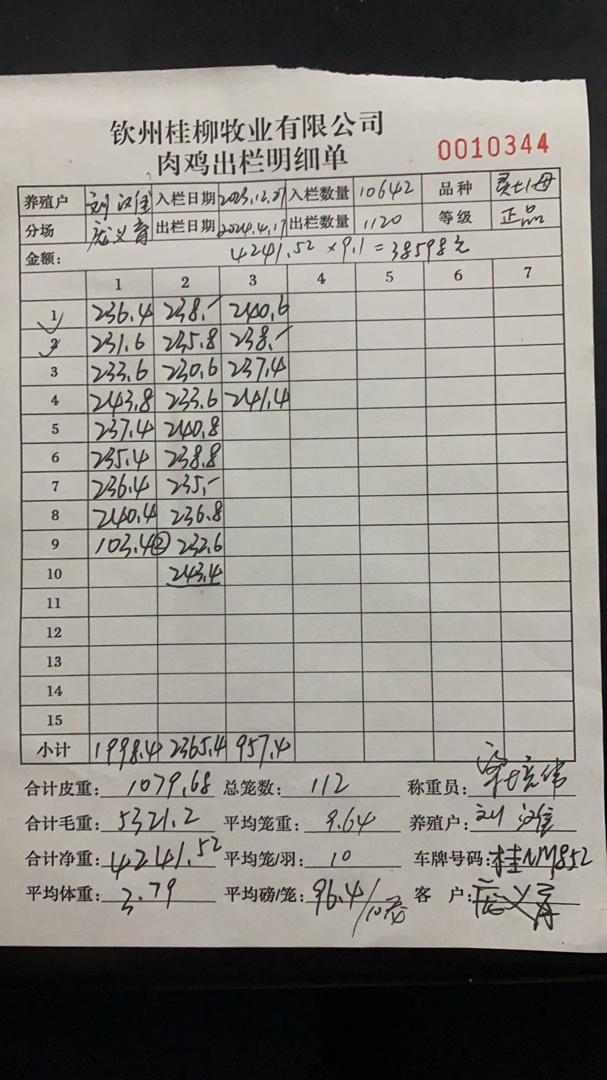 钦州桂柳牧业有限公司
肉鸡出栏明细单 0010344
养殖户 刘汉佳 入栏日期 2023.12.27 入栏数量 10642 品种
分场 庞义育 出栏日期 2024.4.17 出栏数量 1120 等级 正品
金额: 4241.52×9.1=38598元
1 2 3 4 5 6 7
1 236.4 238.- 240.6
2 231.6 235.8 238.-
3 233.6 230.6 237.4
4 243.8 233.6 241.4
5 237.4 240.8
6 235.4 238.8
7 236.4 235.-
8 240.4 236.8
9 103.4② 232.6
10 243.4
11
12
13
14
15
小计 1998.4 2365.4 957.4
合计皮重: 1079.68 总笼数: 112 称重员:
合计毛重: 5321.2 平均笼重: 9.64 养殖户: 刘汉佳
合计净重: 4241.52 平均笼/羽: 10 车牌号码: 桂NM852
平均体重: 3.79 平均磅/笼: 96.4/10 客 户: 庞义育